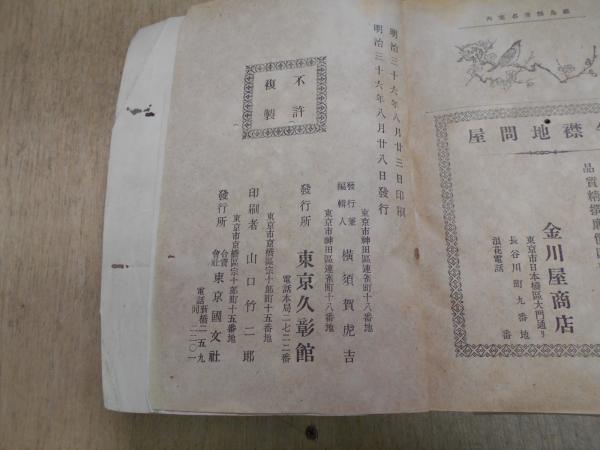 品質精撰廉價
金川屋商店
東京市日本橋區大門通リ
長谷川町九番地
浪花電話 番
襟地問屋
明治三十六年八月廿三日印刷
明治三十六年八月廿八日發行
不許
複製
東京市神田區連雀町十八番地
發行兼
編輯人 橫須賀虎吉
東京市神田區連雀町十八番地
發行所 東京久彰館
電話本局二七二二番
東京市京橋區宗十郎町十五番地
印刷者 山口竹二郎
東京市京橋區宗十郎町十五番地
發行所 合資會社 東京國文社
電話新橋二一五九
同二二〇一